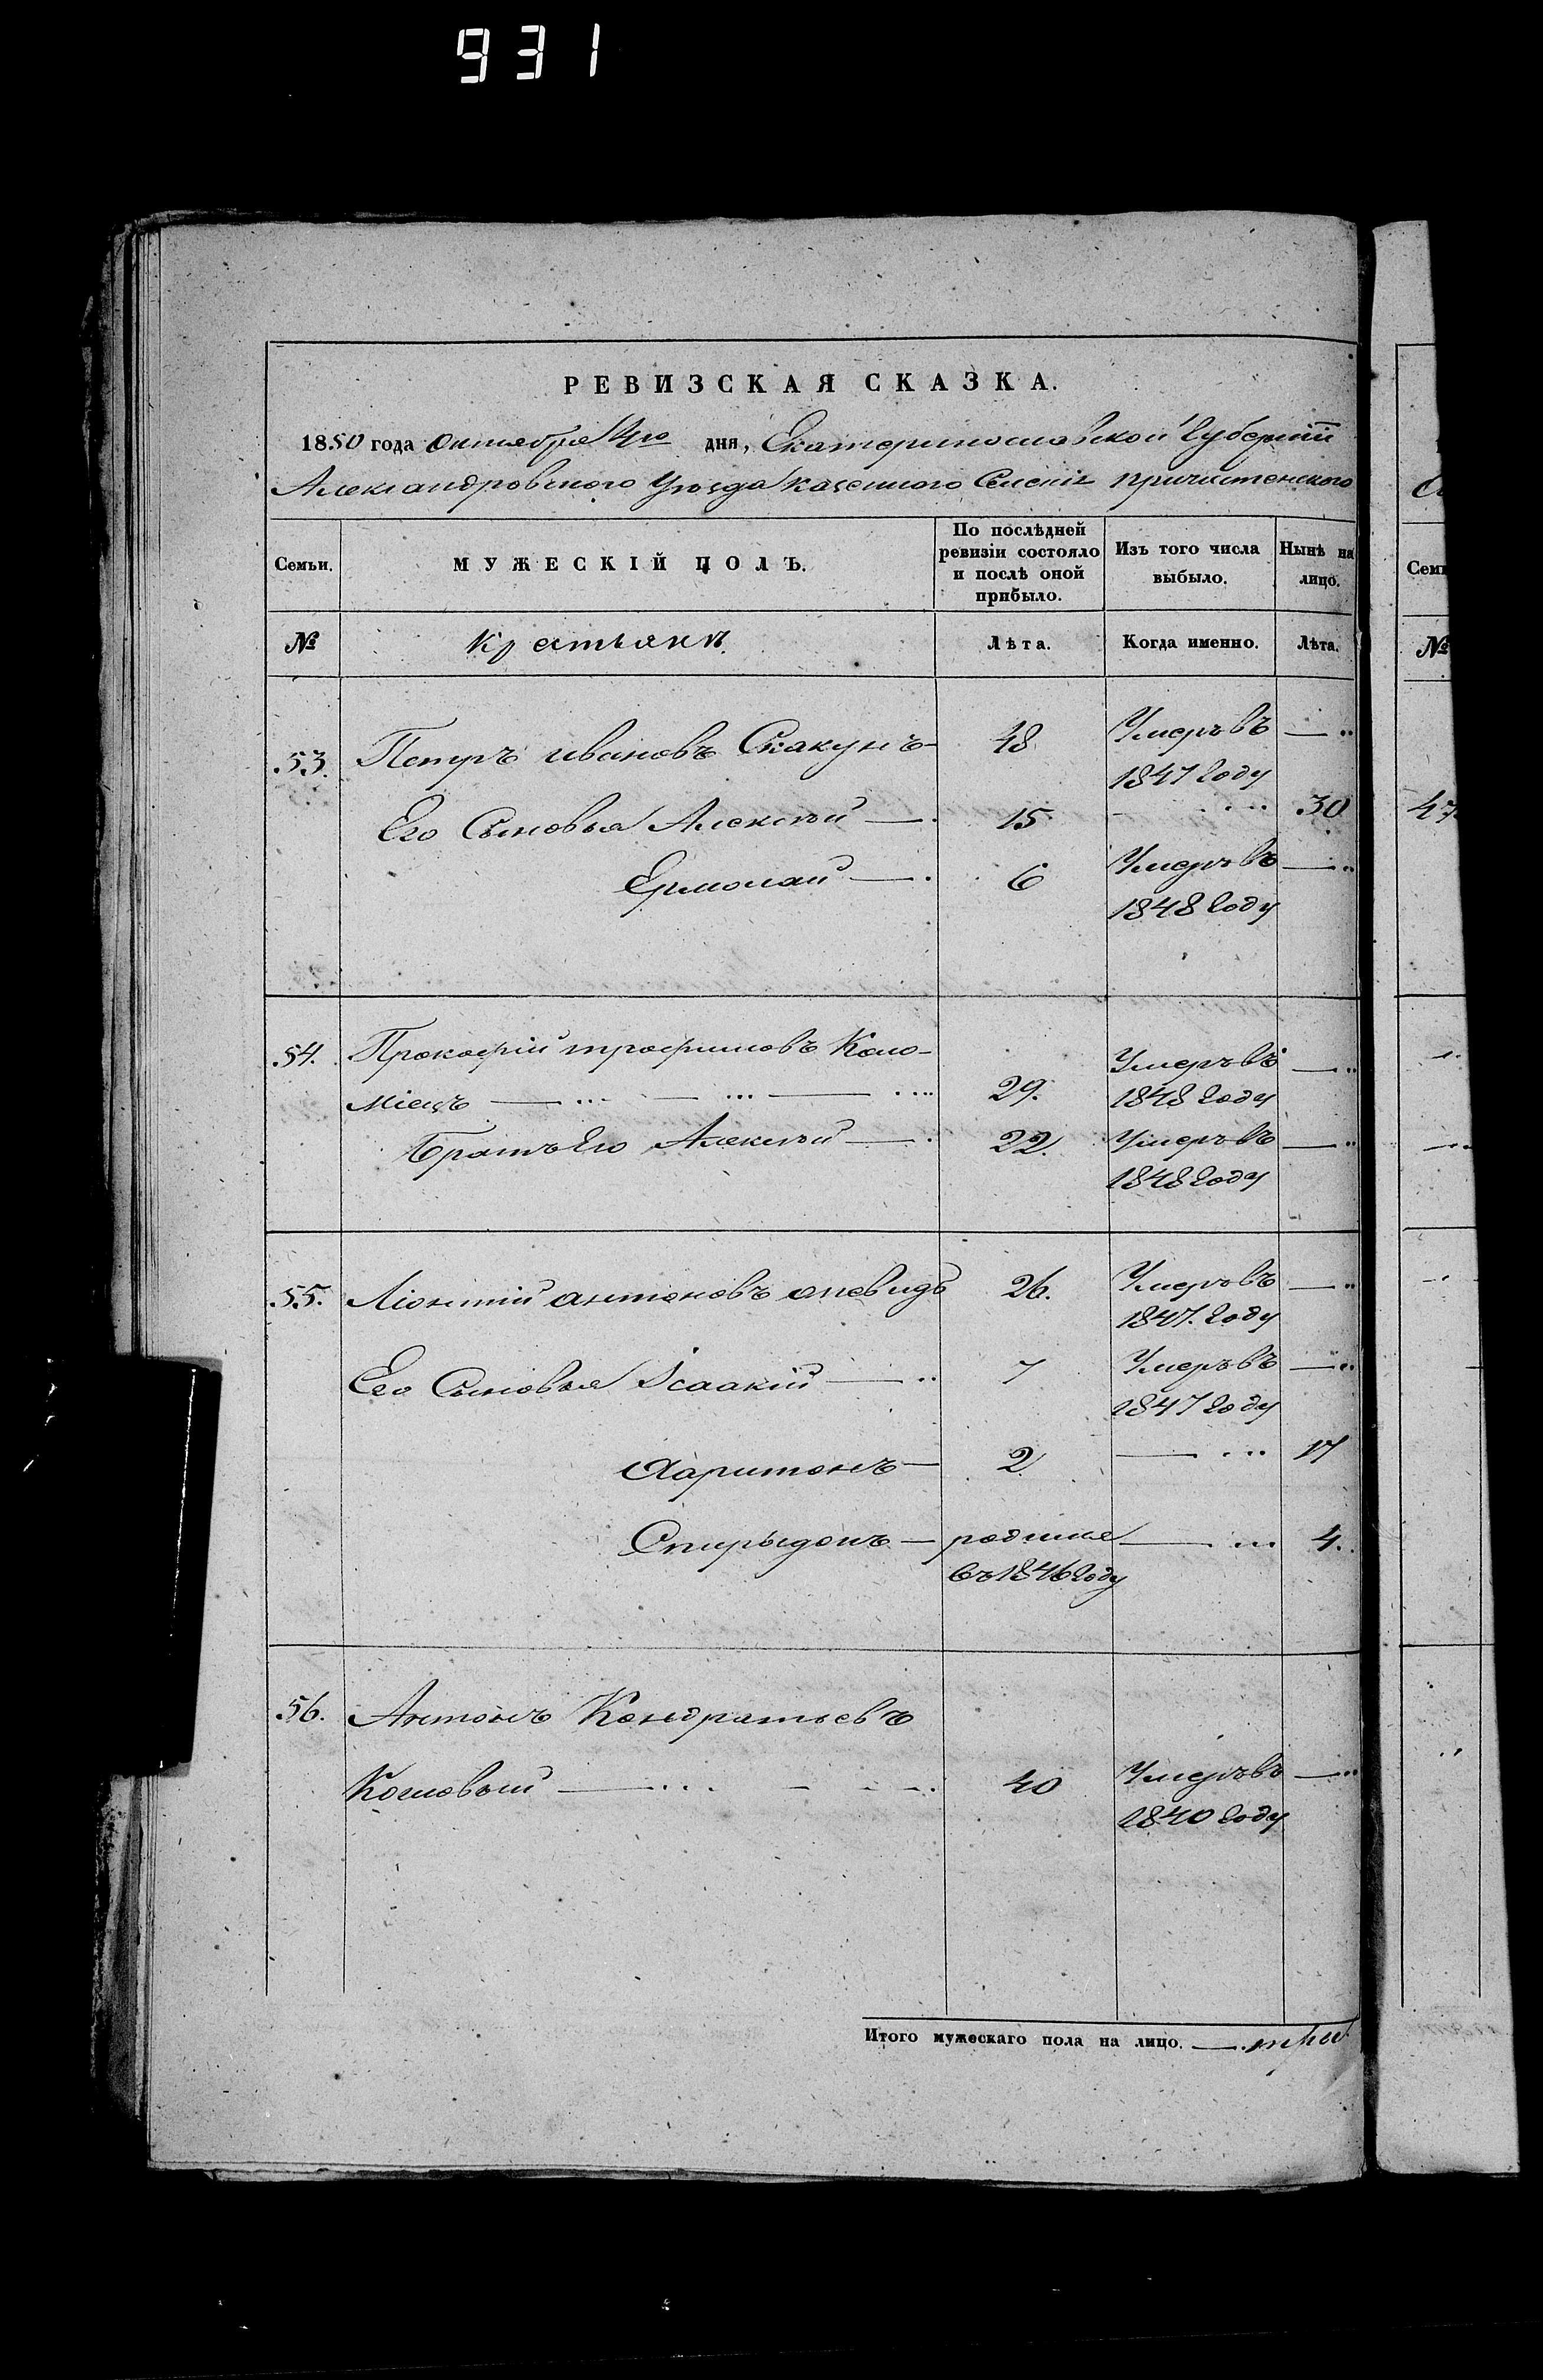 931
РЕВИЗСКАЯ СКАЗКА.
1850 года Октября 4го дня, Екатеринославской Губерніи
Александровского Уѣзда Казенного Селенія Причистенского
Семьи. МУЖЕСКІЙ ПОЛЪ. По послѣдней ревизіи состояло и послѣ оной прибыло. Изъ того числа выбыло. Нынѣ на лицо.
№ Крестьянъ. Лѣта. Когда именно. Лѣта.
53. Петръ ивановъ Скакунъ 48 Умеръ въ 1847 году
Его Сыновья Алексѣй 15 30
Ермолай 6 Умеръ въ 1848 году
54. Прокофій трофимовъ Коло-
міецъ 29. Умеръ въ 1848 году
Братъ Его Алексѣй 22. Умеръ въ 1848 году
55. Ліонтій антоновъ 26. Умеръ въ 1847. году
Его Сыновья Ісаакій 7 Умеръ въ 1847 году
Харитонъ 2. 17
Спирыдонъ родился въ 1846 году 4.
56. Антонъ Кондратьевъ
Кошовый 40 Умеръ въ 1840 году
Итого мужескаго пола на лицо. три
Семьи
№
47